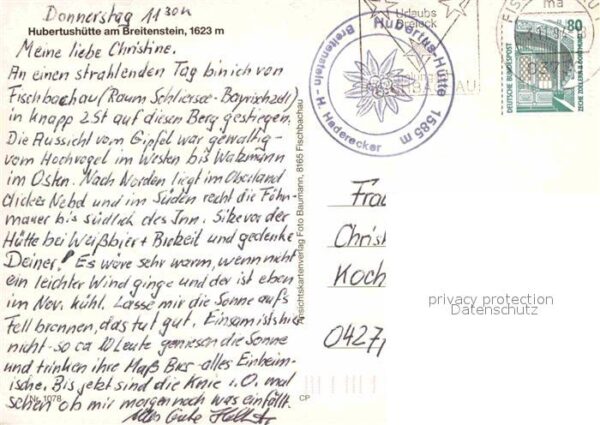 Donnerstag 11 30h
Hubertushütte am Breitenstein, 1623 m
Meine liebe Christine.
An einen strahlenden Tag bin ich von
Fischbachau (Raum Schliersee-Bayrischzell)
in knapp 2 St auf diesen Berg gestiegen.
Die Aussicht vom Gipfel war gewaltig -
vom Hochvogel im Westen bis Watzmann
im Osten. Nach Norden liegt im Oberland
dicker Nebel und im Süden reicht die Föhn-
mauer bis südlich des Inn. Sitze vor der
Hütte bei Weißbier + Brotzeit und gedenke
Deiner! Es wäre sehr warm, wenn nicht
ein leichter Wind ginge und der ist eben
im Nov. kühl. Lasse mir die Sonne aufs
Fell brennen, das tut gut. Einsam ists hier
nicht - so ca 20 Leute geniesen die Sonne
und trinken ihre Maß Bier - alles Einheim-
ische. Bis jetzt sind die Knie i.O. mal
sehen ob mir morgen noch was einfällt.
Alles Gute
Nr. 1078
CP
Ansichtskartenverlag Foto Baumann, 8165 Fischbachau
Urlaubs
Dreieck
Hubertus-Hütte 1585 m
Breitenstein - H. Haderecker
80
DEUTSCHE BUNDESPOST
ZECHE ZOLLERN II DORTMUND
Frau
Christ
Koch
0427
privacy protection
Datenschutz